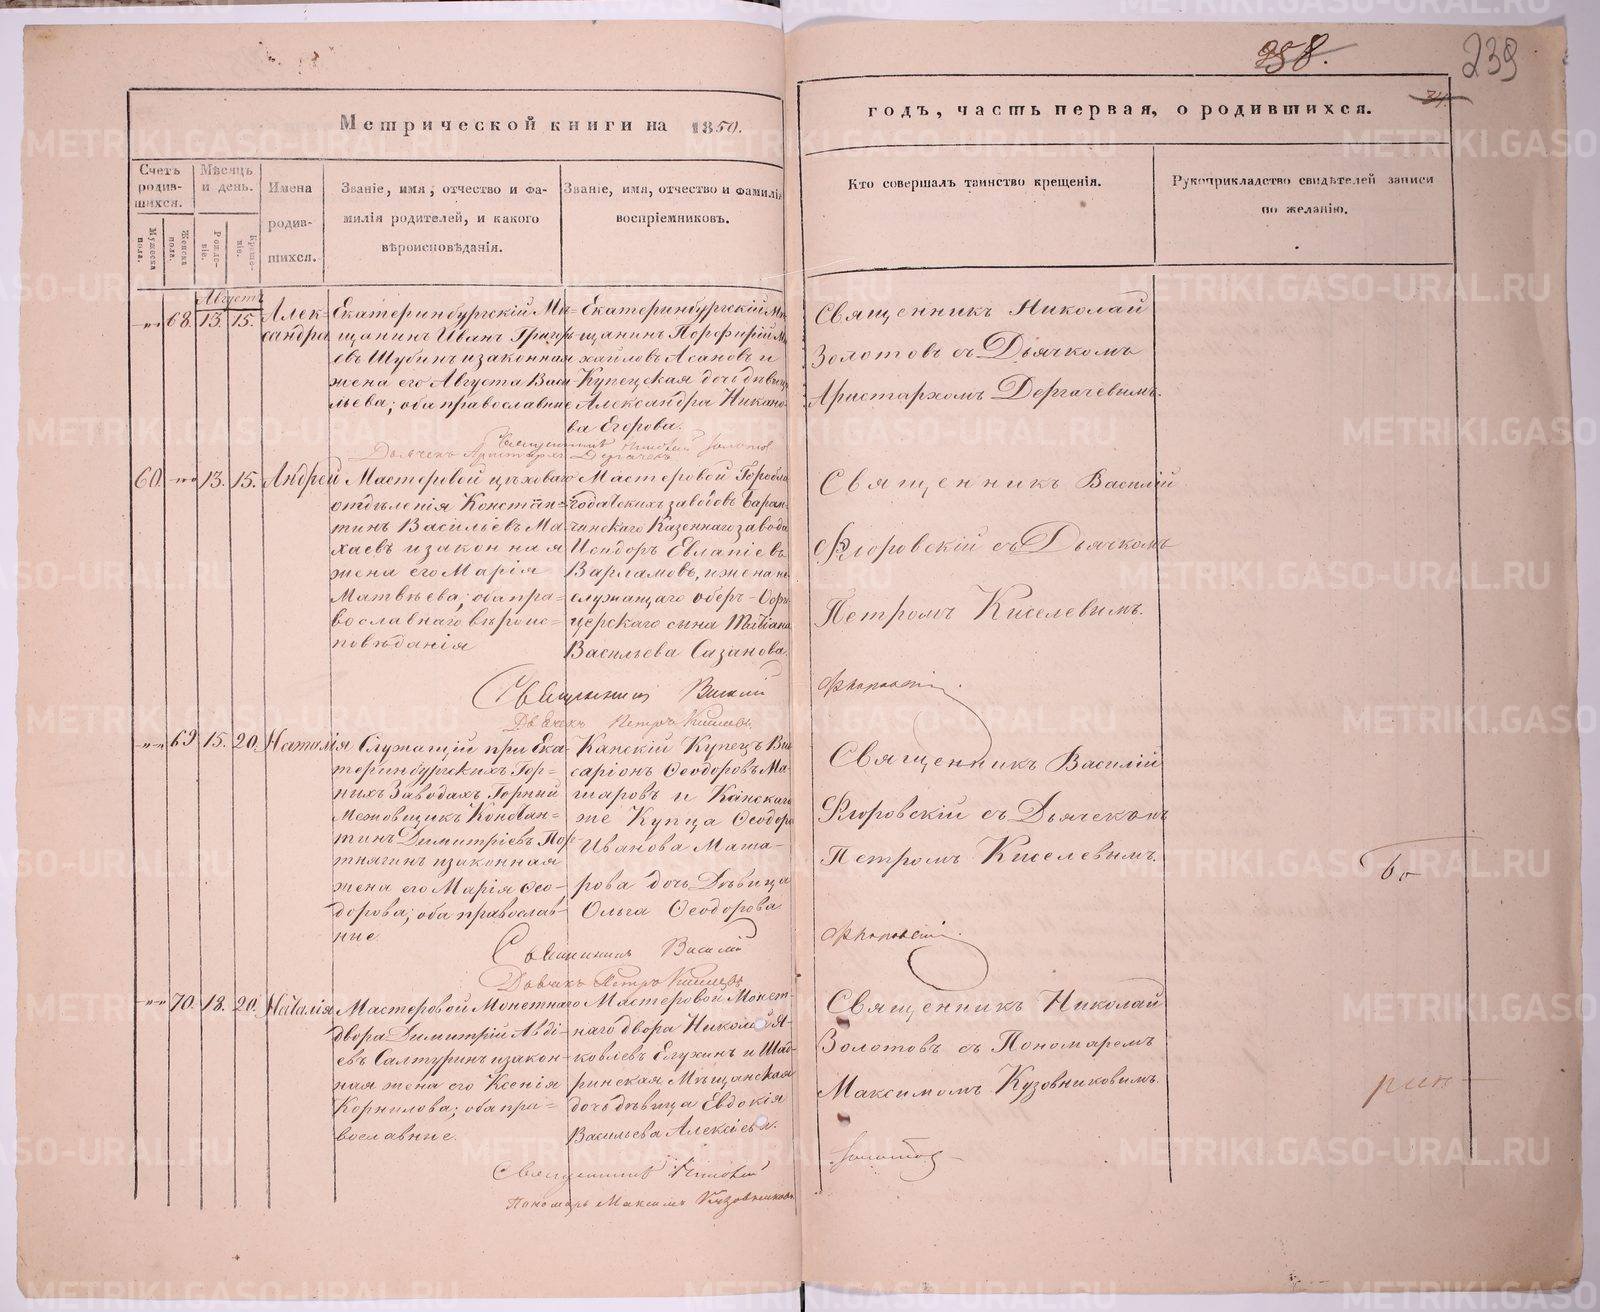 258.
239
34
Метрической книги на 1850.
годъ, часть первая, о родившихся.
Счетъ родив-шихся.
Мужеска пола.
Женска пола.
Мѣсяцъ и день.
Рожде-ніе.
Креще-ніе.
Имена родив-шихся.
Званіе, имя, отчество и фа-
милія родителей, и какого
вѣроисповѣданія.
Званіе, имя, отчество и фамилія
воспріемниковъ.
Кто совершалъ таинство крещенія.
Рукоприкладство свидѣтелей записи
по желанію.
Августъ
68. 13. 15. Алек-
сандра
Екатеринбургскій Мѣ-
щанинъ Иванъ Григорь-
евъ Шубинъ и законная
жена его Августа Васи-
льева; оба православные
Екатеринбургскій Мѣ-
щанинъ Порфирій Ми-
хайловъ Асановъ и
Купецкая дочь дѣвица
Александра Никано-
ва Егорова.
Священникъ Николай
Золотовъ съ Дьячкомъ
Аристархомъ Дергачевымъ.
Священникъ Николай Золотов
Дьячекъ Аристархъ Дергачевъ
60. 13. 15. Андрей
Мастеровой цѣховаго
отдѣленія Констан-
тинъ Васильевъ Ма-
хаевъ и законная
жена его Марія
Матвѣева; оба пра-
вославнаго вѣроис-
повѣданія
Мастеровой Горобла-
годатскихъ заводовъ Баран-
чинскаго Казеннаго завода
Исидоръ Евлапіевъ
Варламовъ, и жена не
служащаго оберъ-Офи-
церскаго сына Татіана
Васильева Сазанова.
Священникъ Василій
Флоровскій съ Дьячкомъ
Петромъ Киселевымъ.
Священникъ Василій Флоровскій.
Дьячекъ Петръ Киселевъ.
69 15. 20. Наталія
Служащій при Ека-
теринбургскихъ Гор-
ныхъ Заводахъ Горный
Межовщикъ Констан-
тинъ Димитріевъ Пор-
тнягинъ и законная
жена его Марія Ѳео-
дорова; оба православ-
ные.
Канскій Купецъ Вис-
саріонъ Ѳеодоровъ Ма-
шаровъ и Канскаго
же Купца Ѳеодора
Иванова Маша-
рова дочь Дѣвица
Ольга Ѳеодорова
Священникъ Василій
Флоровскій съ Дьячекомъ
Петромъ Киселевымъ.
Священникъ Василій Флоровскій.
Дьячекъ Петръ Киселевъ
70. 18. 20. Наталія
Мастеровой Монетнаго
двора Димитрій Авді-
евъ Салтуринъ и закон-
ная жена его Ксенія
Корнилова; оба пра-
вославные.
Мастеровой Монет-
наго двора Николай Я-
ковлевъ Елухинъ и Шад-
ринская Мѣщанская
дочь дѣвица Евдокія
Васильева Алексіева.
Священникъ Николай
Золотовъ съ Пономаремъ
Максимомъ Кузовниковымъ.
Священникъ Николай Золотов
Пономарь Максимъ Кузовниковъ
METRIKI.GASO-URAL.RU